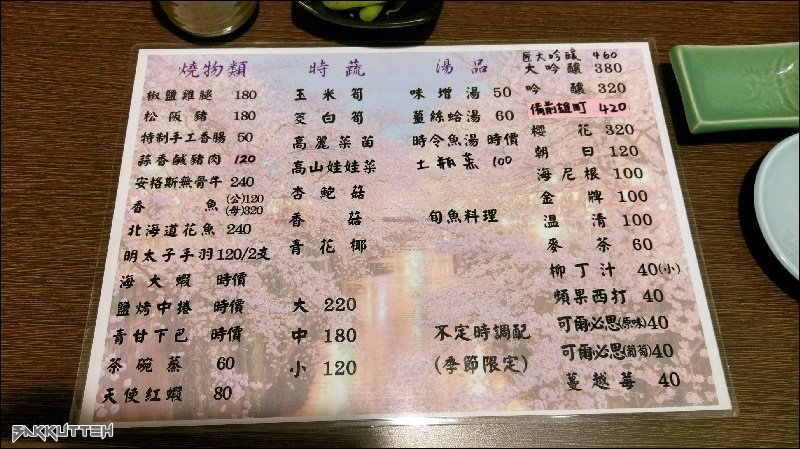 燒物類
椒鹽雞腿 180
松阪豬 180
特製手工香腸 50
蒜香鹹豬肉 120
安格斯無骨牛 240
香魚 (公)120
(母)320
北海道花魚 240
明太子手羽 120/2支
海大蝦 時價
鹽烤中捲 時價
青甘下巴 時價
茶碗蒸 60
天使紅蝦 80
時蔬
玉米筍
茭白筍
高麗菜苗
高山娃娃菜
杏鮑菇
香菇
青花椰
大 220
中 180
小 120
湯品
味增湯 50
薑絲蛤湯 60
時令魚湯 時價
土瓶蒸 100
旬魚料理
不定時調配
(季節限定)
匠大吟釀 460
大吟釀 380
吟釀 320
備前雄町 420
櫻花 320
朝日 120
海尼根 100
金牌 100
溫清 100
麥茶 60
柳丁汁 40(小)
頻果西打 40
可爾必思(原味) 40
可爾必思(葡萄) 40
蔓越莓 40
BAKKUTTEH